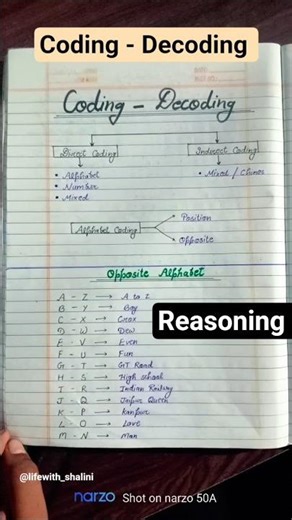 Coding - Decoding
Coding - Decoding
Direct Coding
Indirect Coding
• Alphabet
• Number
• Mixed
• Mixed / Chinese
Alphabet Coding
Position
Opposite
Opposite Alphabet
A - Z → A to Z
B - Y → Boy
C - X → Crax
D - W → Dew
E - V → Even
F - U → Fun
G - T → GT Road
H - S → High School
I - R → Indian Railway
J - Q → Jaipur Queen
K - P → Kanpur
L - O → Love
M - N → Man
Reasoning
@lifewith_shalini
narzo Shot on narzo 50A